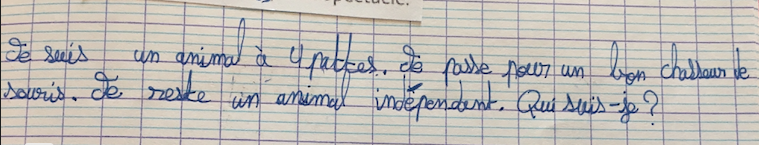 spectacle.
Je suis un animal à 4 pattes. Je passe pour un bon chasseur de
souris. Je reste un animal indépendant. Qui suis-je ?